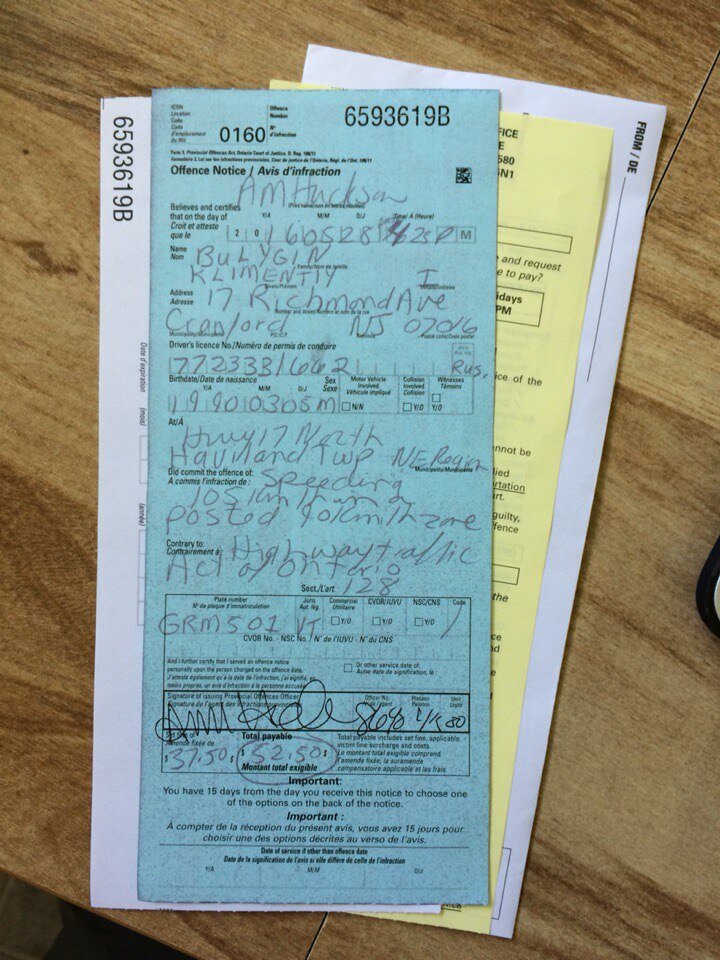 ICON
Location
Code
Code
d'emplacement
du RIII
0160
Offence
Number
N°
d'infraction
6593619B
Form 3, Provincial Offences Act, Ontario Court of Justice, O. Reg. 108/11
formulaire 3, Loi sur les infractions provinciales, Cour de justice de l'Ontario, Règl. de l'Ont. 108/11
Offence Notice / Avis d'infraction
AM
Believes and certifies
that on the day of
Croit et atteste
que le
Y/A M/M D/J Time/ À (Heure)
20160528 M
Name
Nom
BULYGIN
Family/Nom de famille
KLIMENTIY I
Given/Prénom Initials/Initiales
Address
Adresse
17 Richmond Ave
Number and street/Numéro et nom de la rue
Cranford NJ 07016
Municipality/Municipalité P.O./C.P. Province Postal code/Code postal
Driver's licence No./Numéro de permis de conduire
7723331662 Rus.
Birthdate/Date de naissance
Y/A M/M D/J
Sex
Sexe
19900305M
Motor Vehicle
Involved
Véhicule impliqué
N/N
Collision
Involved
Collision
Y/O
Witnesses
Témoins
Y/O
At/À
Hwy 17 North
Haviland Twp NE Region
Municipality/Municipalité
Did commit the offence of:
A commis l'infraction de :
Speeding
105 km/h in a
posted 90 km/h zone
Contrary to:
Contrairement à :
Highway traffic
Act of Ontario
Sect./L'art.
128
Plate number
N° de plaque d'immatriculation
Juris
Aut. lég.
Commercial
Utilitaire
Y/O
CVOR/IUVU
Y/O
NSC/CNS
Y/O
Code
GRM501 VT
CVOR No. - NSC No./ N° de l'IUVU - N° du CNS
And I further certify that I served an offence notice
personally upon the person charged on the offence date.
J'atteste également qu'à la date de l'infraction, j'ai signifié, en
mains propres, un avis d'infraction à la personne accusée.
Or other service date of:
Autre date de signification, le :
Signature of issuing Provincial Offences Officer
Signature de l'agent des infractions provinciales
Officer No.
N° de l'agent
Platoon
Peloton
Unit
Unité
Set fine of
Amende fixée de
$ 37.50
Total payable
$ 52.50
Montant total exigible
Total payable includes set fine, applicable
victim fine surcharge and costs.
Le montant total exigible comprend
l'amende fixée, la suramende
compensatoire applicable et les frais.
Important:
You have 15 days from the day you receive this notice to choose one
of the options on the back of the notice.
Important :
À compter de la réception du présent avis, vous avez 15 jours pour
choisir une des options décrites au verso de l'avis.
Date of service if other than offence date
Date de la signification de l'avis si elle diffère de celle de l'infraction
Y/A M/M D/J
6593619B
Date d'expiration
(mois)
(année)
FROM / DE
FICE
E
580
5N1
and request
to pay?
idays
PM
ice of the
nnot be
lied
ortation
urt.
guilty,
ffence
the